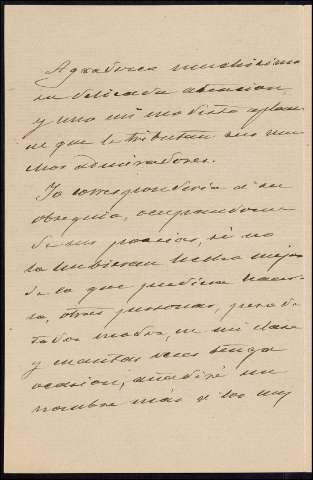 Agradezco muchísimo
su delicada atencion,
y uno mi modesto aplau-
so que le tributan sus mu-
chos admiradores.
Yo corresponderia á su
obsequio, ocupandome
de sus poesias, si no
lo hubieran hecho mejor
de lo que pudiera hacer-
lo, otras personas, pero de
todos modos, en mi clase
y cuantas veces tenga
ocasion, añadiré un
nombre más á los muy